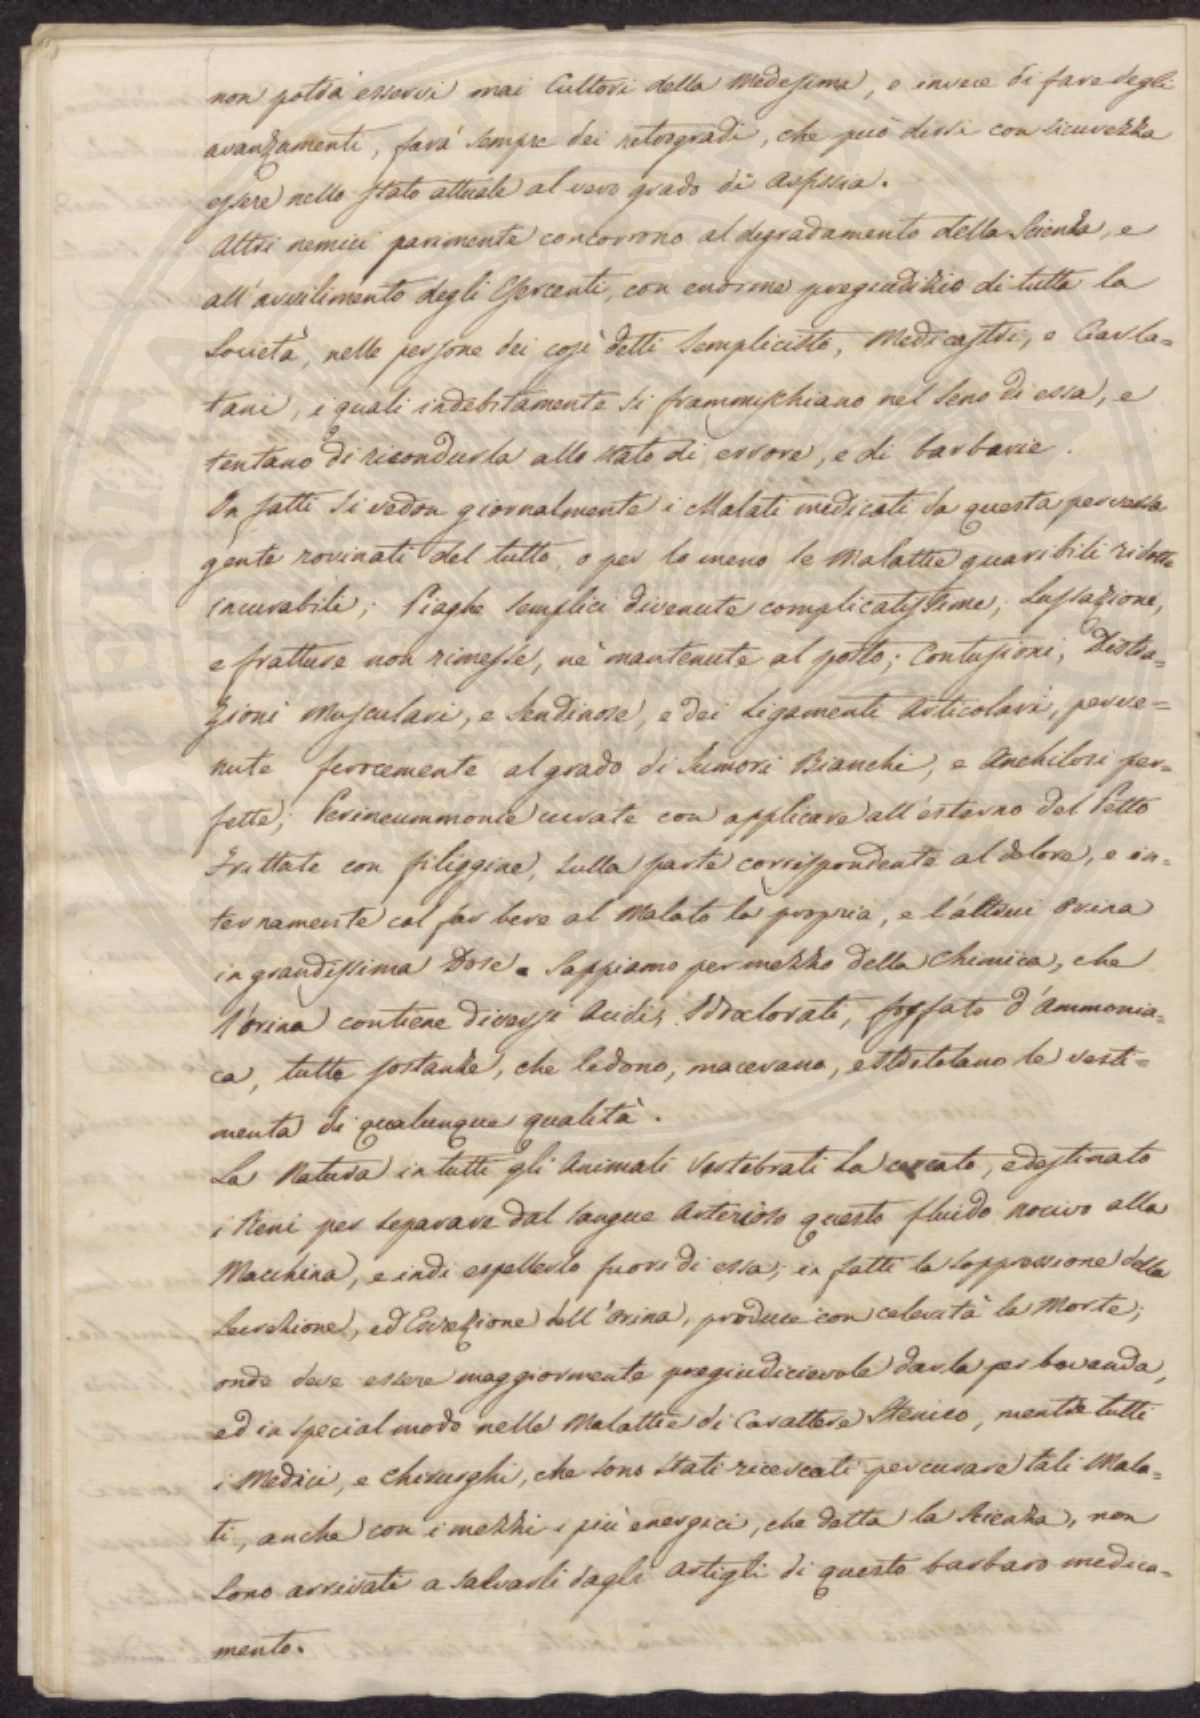 non potrà esservi mai Cultori della Medesima, e invece di fare degli
avanzamenti, farà sempre dei retrogradi, che può dirsi con sicurezza
essere nello stato attuale al vero grado di Asfissia.
Altri nemici parimente concorrono al degradamento della Scienza, e
all'avvilimento degli Esercenti, con enorme pregiudizio di tutta la
Società, nelle persone dei così detti Semplicisti, Medicastri, e Ciarla=
tani, i quali indebitamente si frammischiano nel Seno di essa, e
tentano di ricondurla allo stato di errore, e di barbarie.
In fatti si vedon giornalmente i Malati medicati da questa perversa
gente rovinati del tutto, o per lo meno le Malattie guaribili ridotte
incurabili; Piaghe semplici divenute complicatissime; Lussazione,
e fratture non rimesse, nè mantenute al posto; Contusioni, Distra=
zioni Musculari, e Tendinose, e dei Ligamenti Articolari, perve=
nute ferocemente al grado di Tumori Bianchi, e Anchilosi per=
fette; Perineummonie curate con applicare all'esterno del Petto
Frittate con filiggine, sulla parte corrispondente al dolore, e in=
ternamente col far bere al Malato la propria, e l'altrui Orina
in grandissima Dose. Sappiamo per mezzo della Chimica, che
l'orina contiene diversi Acidi, Idroclorati, fosfato d'Ammonia=
ca, tutte sostanze, che ledono, macerano, e stritolano le vesti=
menta di qualunque qualità.
La Natura in tutti gli Animali Vertebrati ha creato, e destinato
i Reni per separare dal sangue Arterioso questo fluido nocivo alla
Macchina, e indi espellerlo fuori di essa; in fatti la soppressione della
Secrezione, ed Escrezione dell'Orina, produce con celerità la Morte;
onde deve essere maggiormente pregiudicievole darla per bevanda,
ed in special modo nelle Malattie di Carattere Stenico, mentre tutti
i Medici, e Chirurghi, che sono stati ricercati per curare tali Mala=
ti, anche con i mezzi i più energici, che detta la Scienza, non
sono arrivati a salvarli dagli Artigli di questo barbaro medica=
mento.